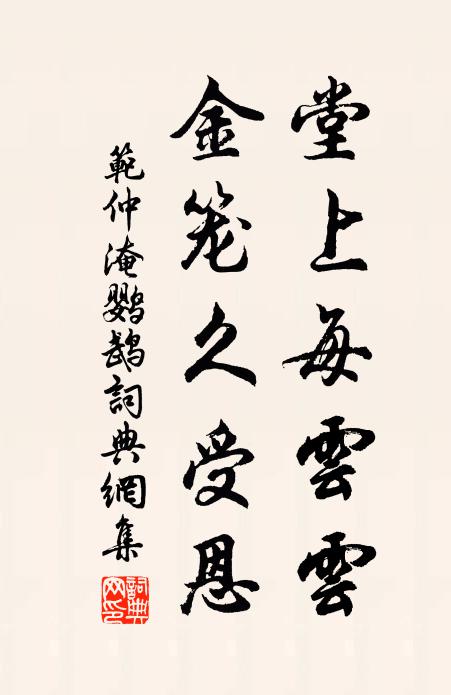 堂上每雲雲
金笼久受恩
範仲淹鸚鵡詞典網集
詞典網印